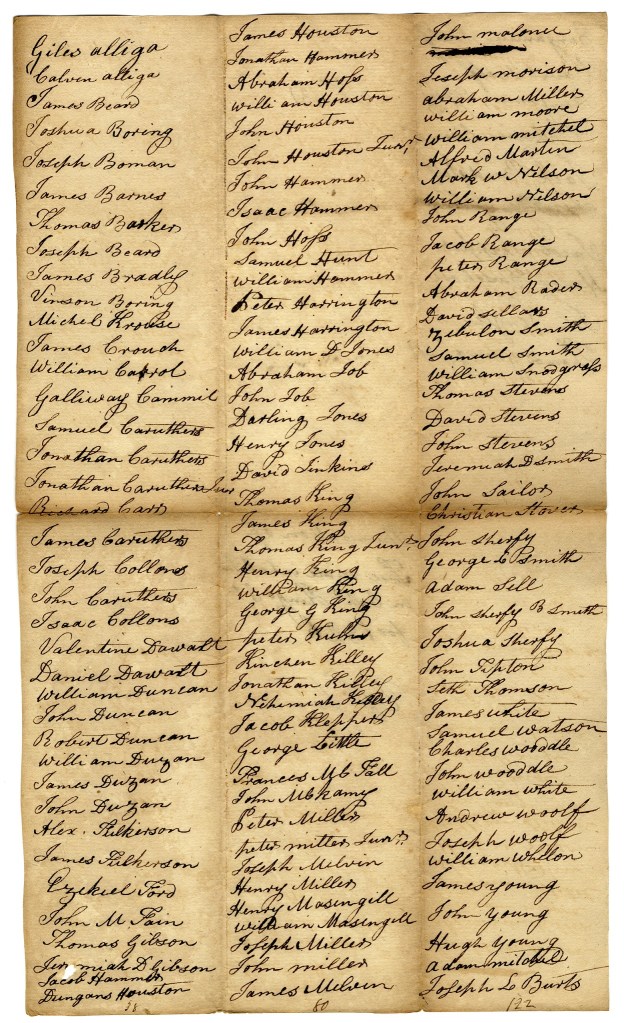 Giles alliga
Calvin alliga
James Beard
Joshua Boring
Joseph Boman
James Barnes
Thomas Barker
Joseph Beard
James Bradly
Vinson Boring
Michel Krouse
James Crouch
William Carrol
Galliway Cammil
Samuel Caruthers
Jonathan Caruthers
Jonathan Caruthers Junr
Richard Carr
James Caruthers
Joseph Collons
John Caruthers
Isaac Collons
Valentine Dawalt
Daniel Dawalt
William Duncan
John Duncan
Robert Duncan
William Duzan
James Duzan
John Duzan
Alex. Fulkerson
James Fulkerson
Ezekiel Ford
John M Fain
Thomas Gibson
Jeremiah D Gibson
Jacob Hammer
Dungans Houston
38
James Houston
Jonathan Hammer
Abraham Hoss
william Houston
John Houston
John Houston Junr.
John Hammer
Isaac Hammer
John Hoss
Samuel Hunt
william Hammer
Peter Harrington
James Harrington
William D Jones
Abraham Job
John Job
Darling Jones
Henry Jones
David Jinkins
Thomas King
James King
Thomas King Junr.
Henry King
william King
George G King
peter Kuhn
Kinchen Killey
Jonathan Killey
Nehimiah Killey
Jacob Klepper
George Little
Frances Mc Fall
John McKamy
Peter Miller
peter miller Junr.
Joseph Melvin
Henry Miller
Henry Masingill
william Masingill
Joseph Miller
John miller
James Melvin
80
John malone
Joseph morison
abraham Miller
william moore
william mitchel
Alfred Martin
Mark W Nilson
William Nilson
John Range
Jacob Range
peter Range
Abraham Rader
David sellars
Zebulon Smith
Samuel Smith
william Snodgrass
Thomas Stevens
David Stevens
John Stevens
Jeremiah D Smith
John Sailor
Christian Stover
John sherfy
George L P Smith
adam Sell
John sherfy B Smith
Joshua sherfy
John Tipton
Seth Thomson
James white
Samuel watson
Charles worddle
John wooddle
william white
Andrew woolf
Joseph woolf
william whelon
James young
John young
Hugh young
adam mitchel
Joseph L Burts
122